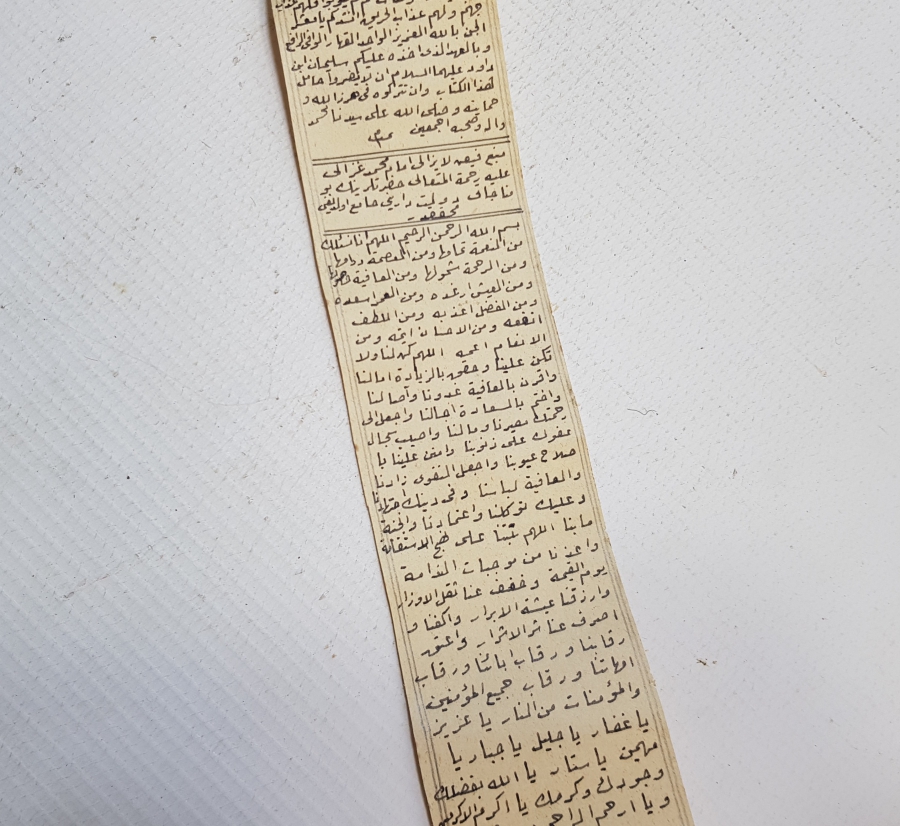 جهنم ولهم عذاب الحريق
الجن بالله العزيز الواحد القهار
وبالعهد الذى اخذه عليكم سليمان ابن
داود عليهما السلام ان لا تضروا حامل
هذا الكتاب وان تتركوه فى حرز الله و
حمايته وصلى الله على سيدنا محمد
واله وصحبه اجمعين
منبع فيض لا يزالى امام محمد غزالى
عليه رحمة المتعالى حضرتلرينك بو
مناجاتى جامع
بسم الله الرحمن الرحيم اللهم انا نسئلك
من النعمة تمامها ومن العصمة دوامها
ومن الرحمة شمولها ومن العافية حصولها
ومن العيش ارغده ومن العمر اسعده
ومن الفضل اعذبه ومن اللطف
انفعه ومن الاحسان اتمه ومن
الانعام اعمه اللهم كن لنا ولا
تكن علينا وحقق بالزيادة امالنا
واقرن بالعافية غدونا وآصالنا
واختم بالسعادة اجالنا واجعل الى
رحمتك مصيرنا ومالنا واصبب سجال
عفوك على ذنوبنا وامنن علينا با
صلاح عيوبنا واجعل التقوى زادنا
والعافية لباسنا وفى دينك اجتهادنا
وعليك توكلنا واعتمادنا والجنة
مابنا اللهم ثبتنا على نهج الاستقامة
واعذنا من موجبات الندامة
يوم القيمة وخفف عنا ثقل الاوزار
وارزقنا عيشة الابرار واكفنا و
اصرف عنا شر الاشرار واعتق
رقابنا ورقاب ابائنا ورقاب
امهاتنا ورقاب جميع المؤمنين
والمؤمنات من النار يا عزيز
يا غفار يا جليل يا جبار يا
مهيمن يا ستار يا الله بفضلك
وجودك وكرمك يا اكرم الاكرمين
ويا ارحم الراحمين